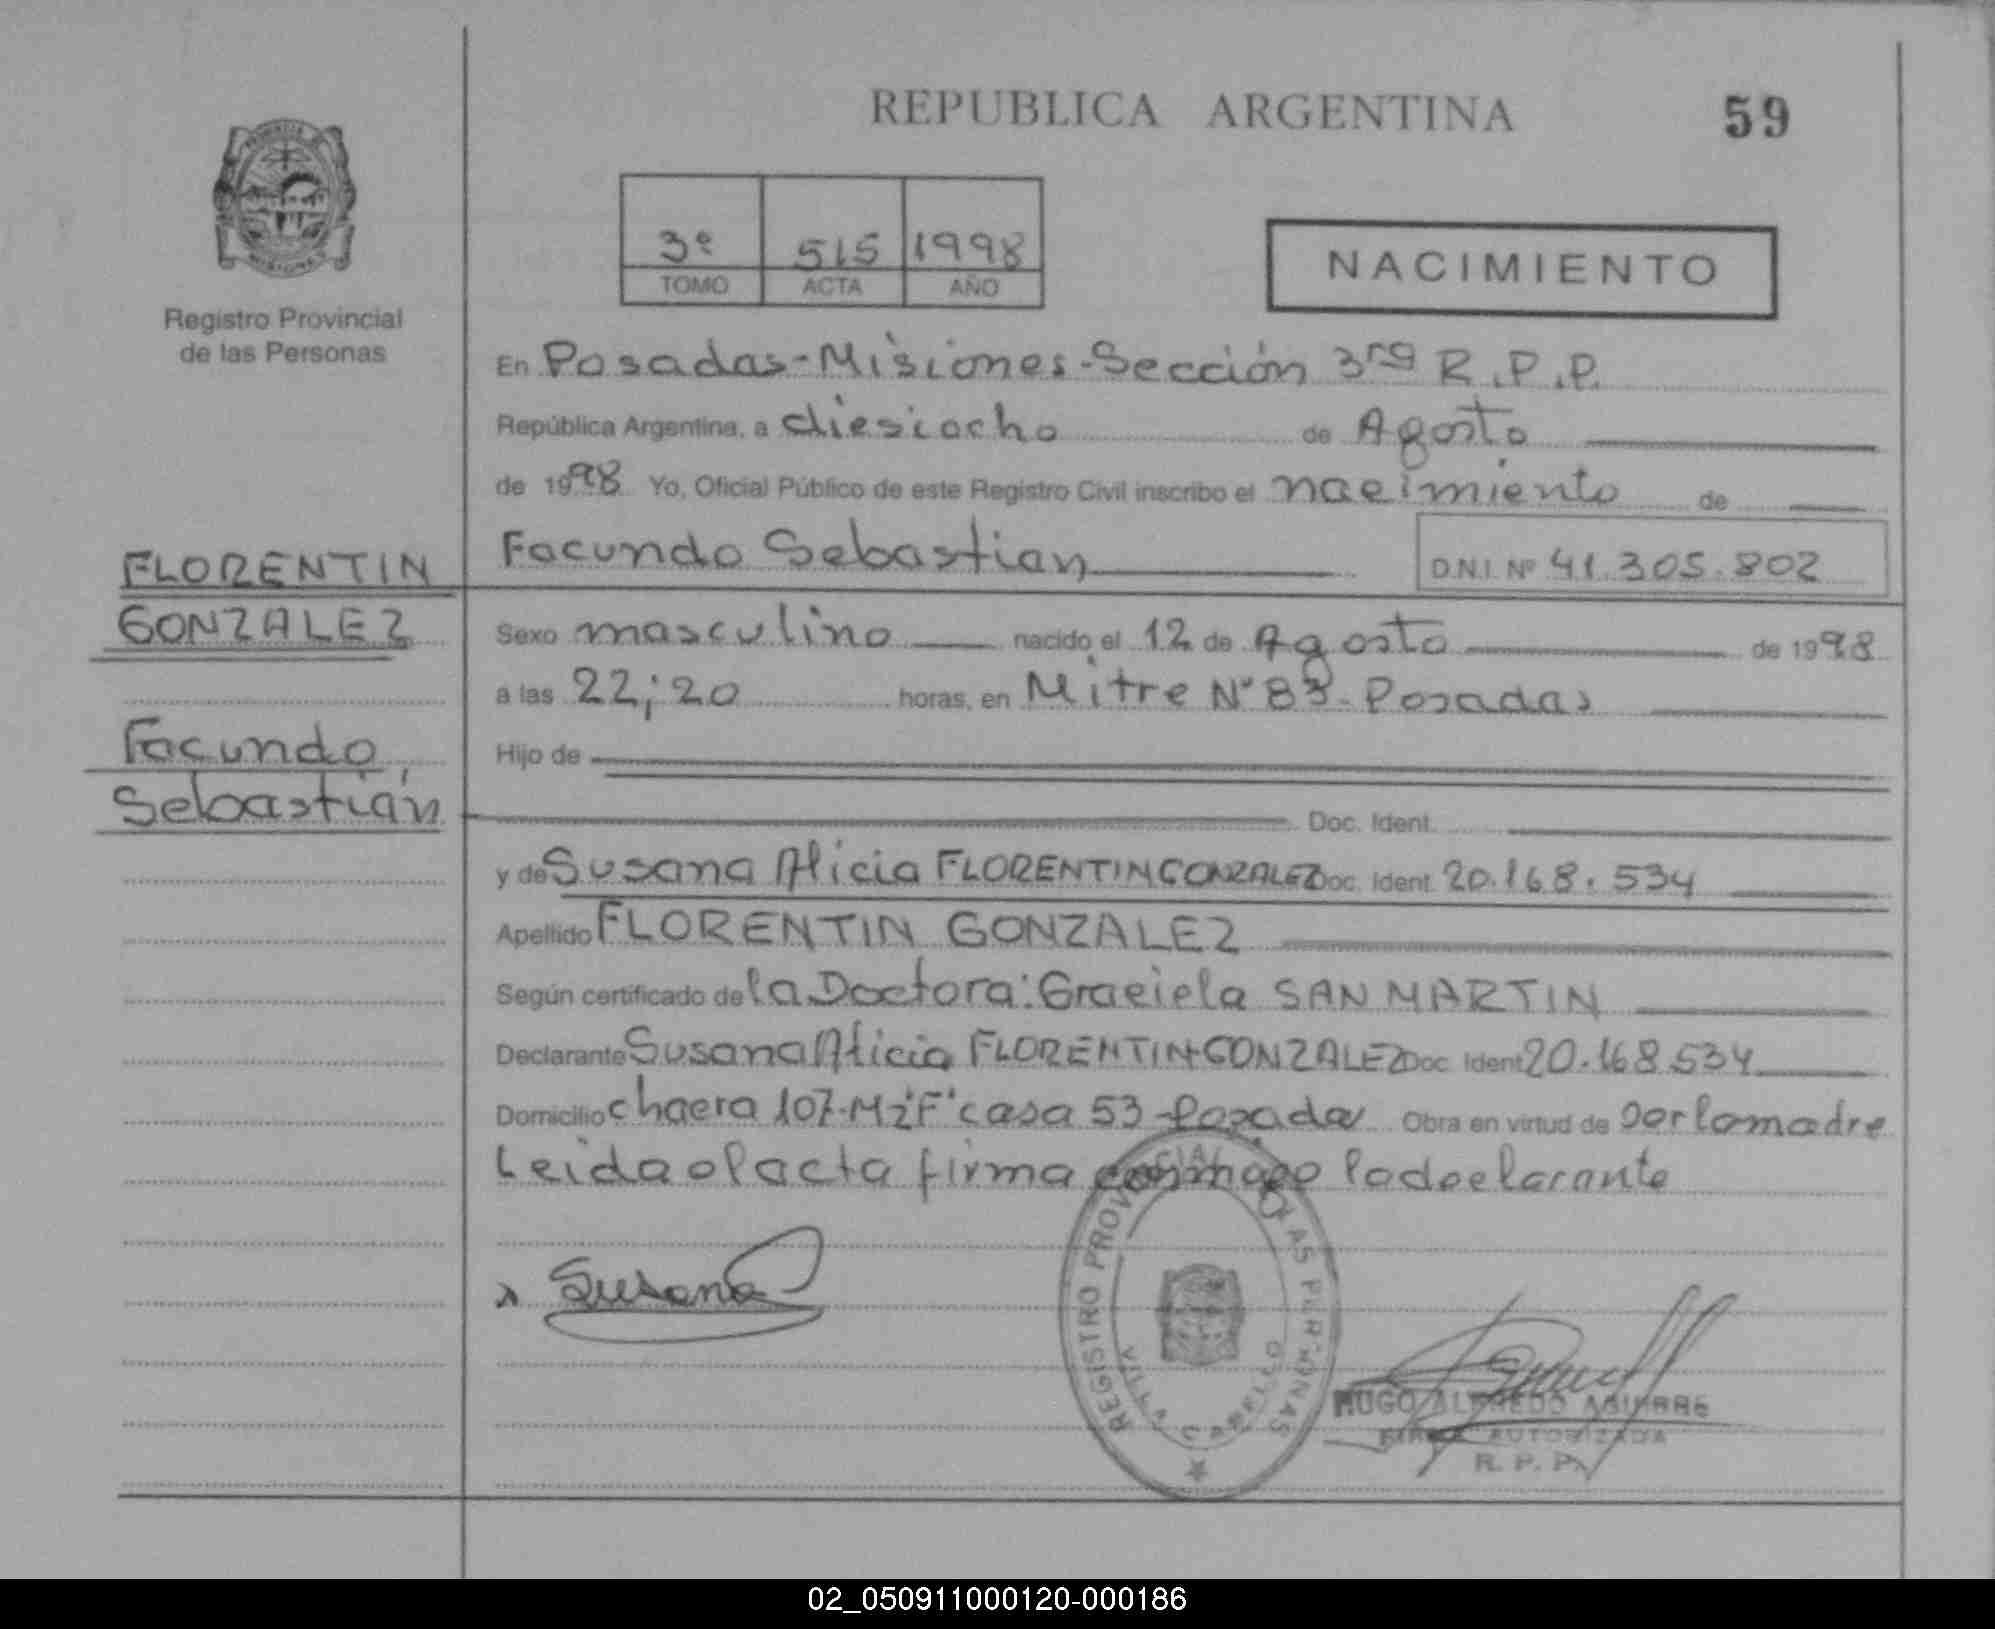 REPUBLICA ARGENTINA
59
3º 515 1998
TOMO ACTA AÑO
NACIMIENTO
Registro Provincial
de las Personas
En Posadas-Misiones-Sección 3ra R.P.P.
República Argentina, a diesiocho de Agosto
de 1998 Yo, Oficial Público de este Registro Civil inscribo el nacimiento de
Facundo Sebastian
D.N.I. Nº 41.305.802
FLORENTIN
GONZALEZ
Facundo
Sebastián
Sexo masculino nacido el 12 de Agosto de 1998
a las 22;20 horas, en Mitre Nº 83-Posadas
Hijo de
Doc. Ident.
y de Susana Alicia FLORENTIN GONZALEZ Doc. Ident. 20.168.534
Apellido FLORENTIN GONZALEZ
Según certificado de la Doctora: Graciela SAN MARTIN
Declarante Susana Alicia FLORENTIN GONZALEZ Doc. Ident 20.168.534
Domicilio chacra 107-Mz"F"casa 53-Posadas Obra en virtud de ser la madre
Leida el acta firma conmigo la declarante
Susana
REGISTRO PROVINCIAL DE LAS PERSONAS
VILLA CABELLO
HUGO ALFREDO AGUIRRE
FIRMA AUTORIZADA
R. P. P.
02_050911000120-000186